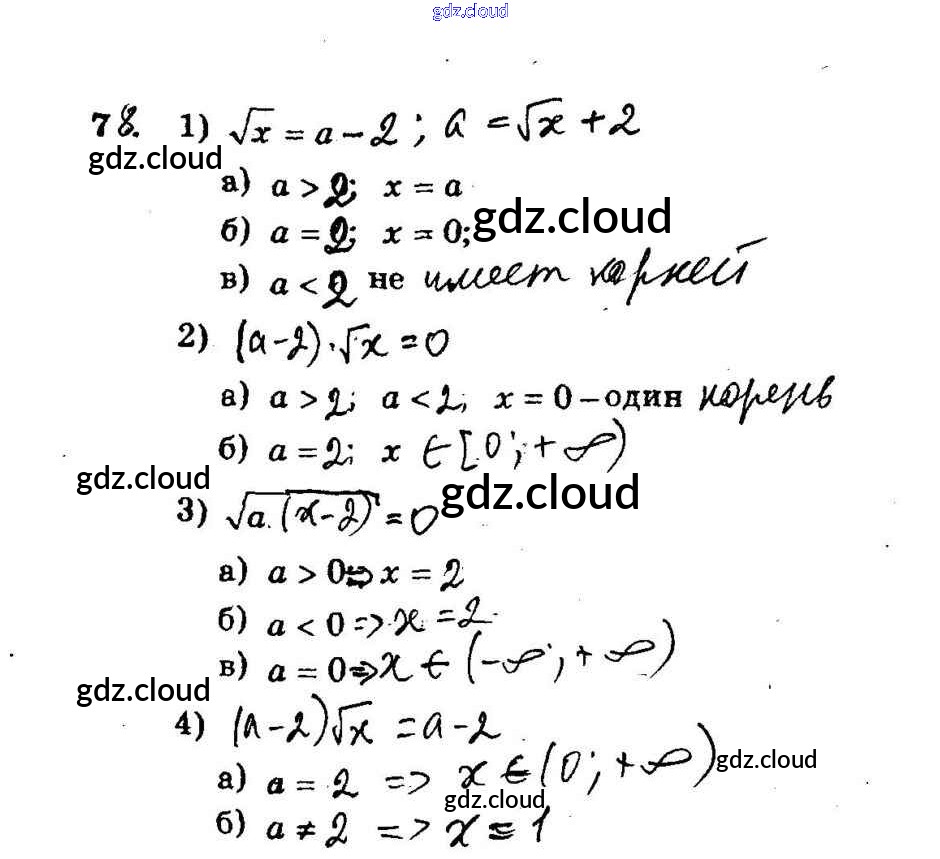 gdz.cloud
78. 1) √x = a - 2; a = √x + 2
gdz.cloud
а) a > 2; x = a
б) a = 2; x = 0;
gdz.cloud
в) a < 2 не имеет корней
2) (a - 2) · √x = 0
а) a > 2; a < 2; x = 0 – один корень
б) a = 2; x ∈ [0; +∞)
gdz.cloud
gdz.cloud
3) √a·(x-2) = 0
а) a > 0 => x = 2
б) a < 0 => x = 2
в) a = 0 => x ∈ (-∞; +∞)
gdz.cloud
4) (a - 2)√x = a - 2
а) a = 2 => x ∈ (0; +∞)
gdz.cloud
gdz.cloud
б) a ≠ 2 => x = 1